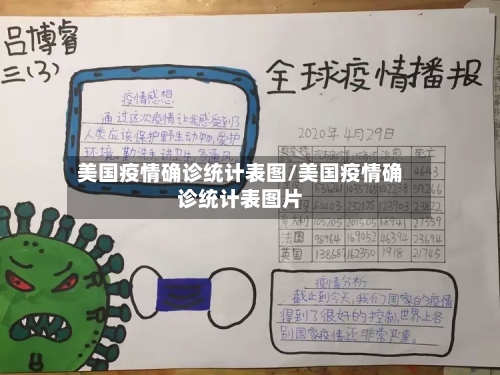 吕博睿
三(3)
全球疫情播报
疫情感想
通过这次疫情让我感受到了
人类应该保护野生动物,爱护
环境
2020年4月29日
美国疫情确诊统计表图/美国疫情确
诊统计表图片
4643
59266
23822
105205 201505 68941 27359
法国 98964 169052 46394 23694
英国 138687 162350 1918 21745
疫情分析
截止到今天,我们国家的疫情
得到了很好的控制,世界上各
别国家疫情还非常严重。